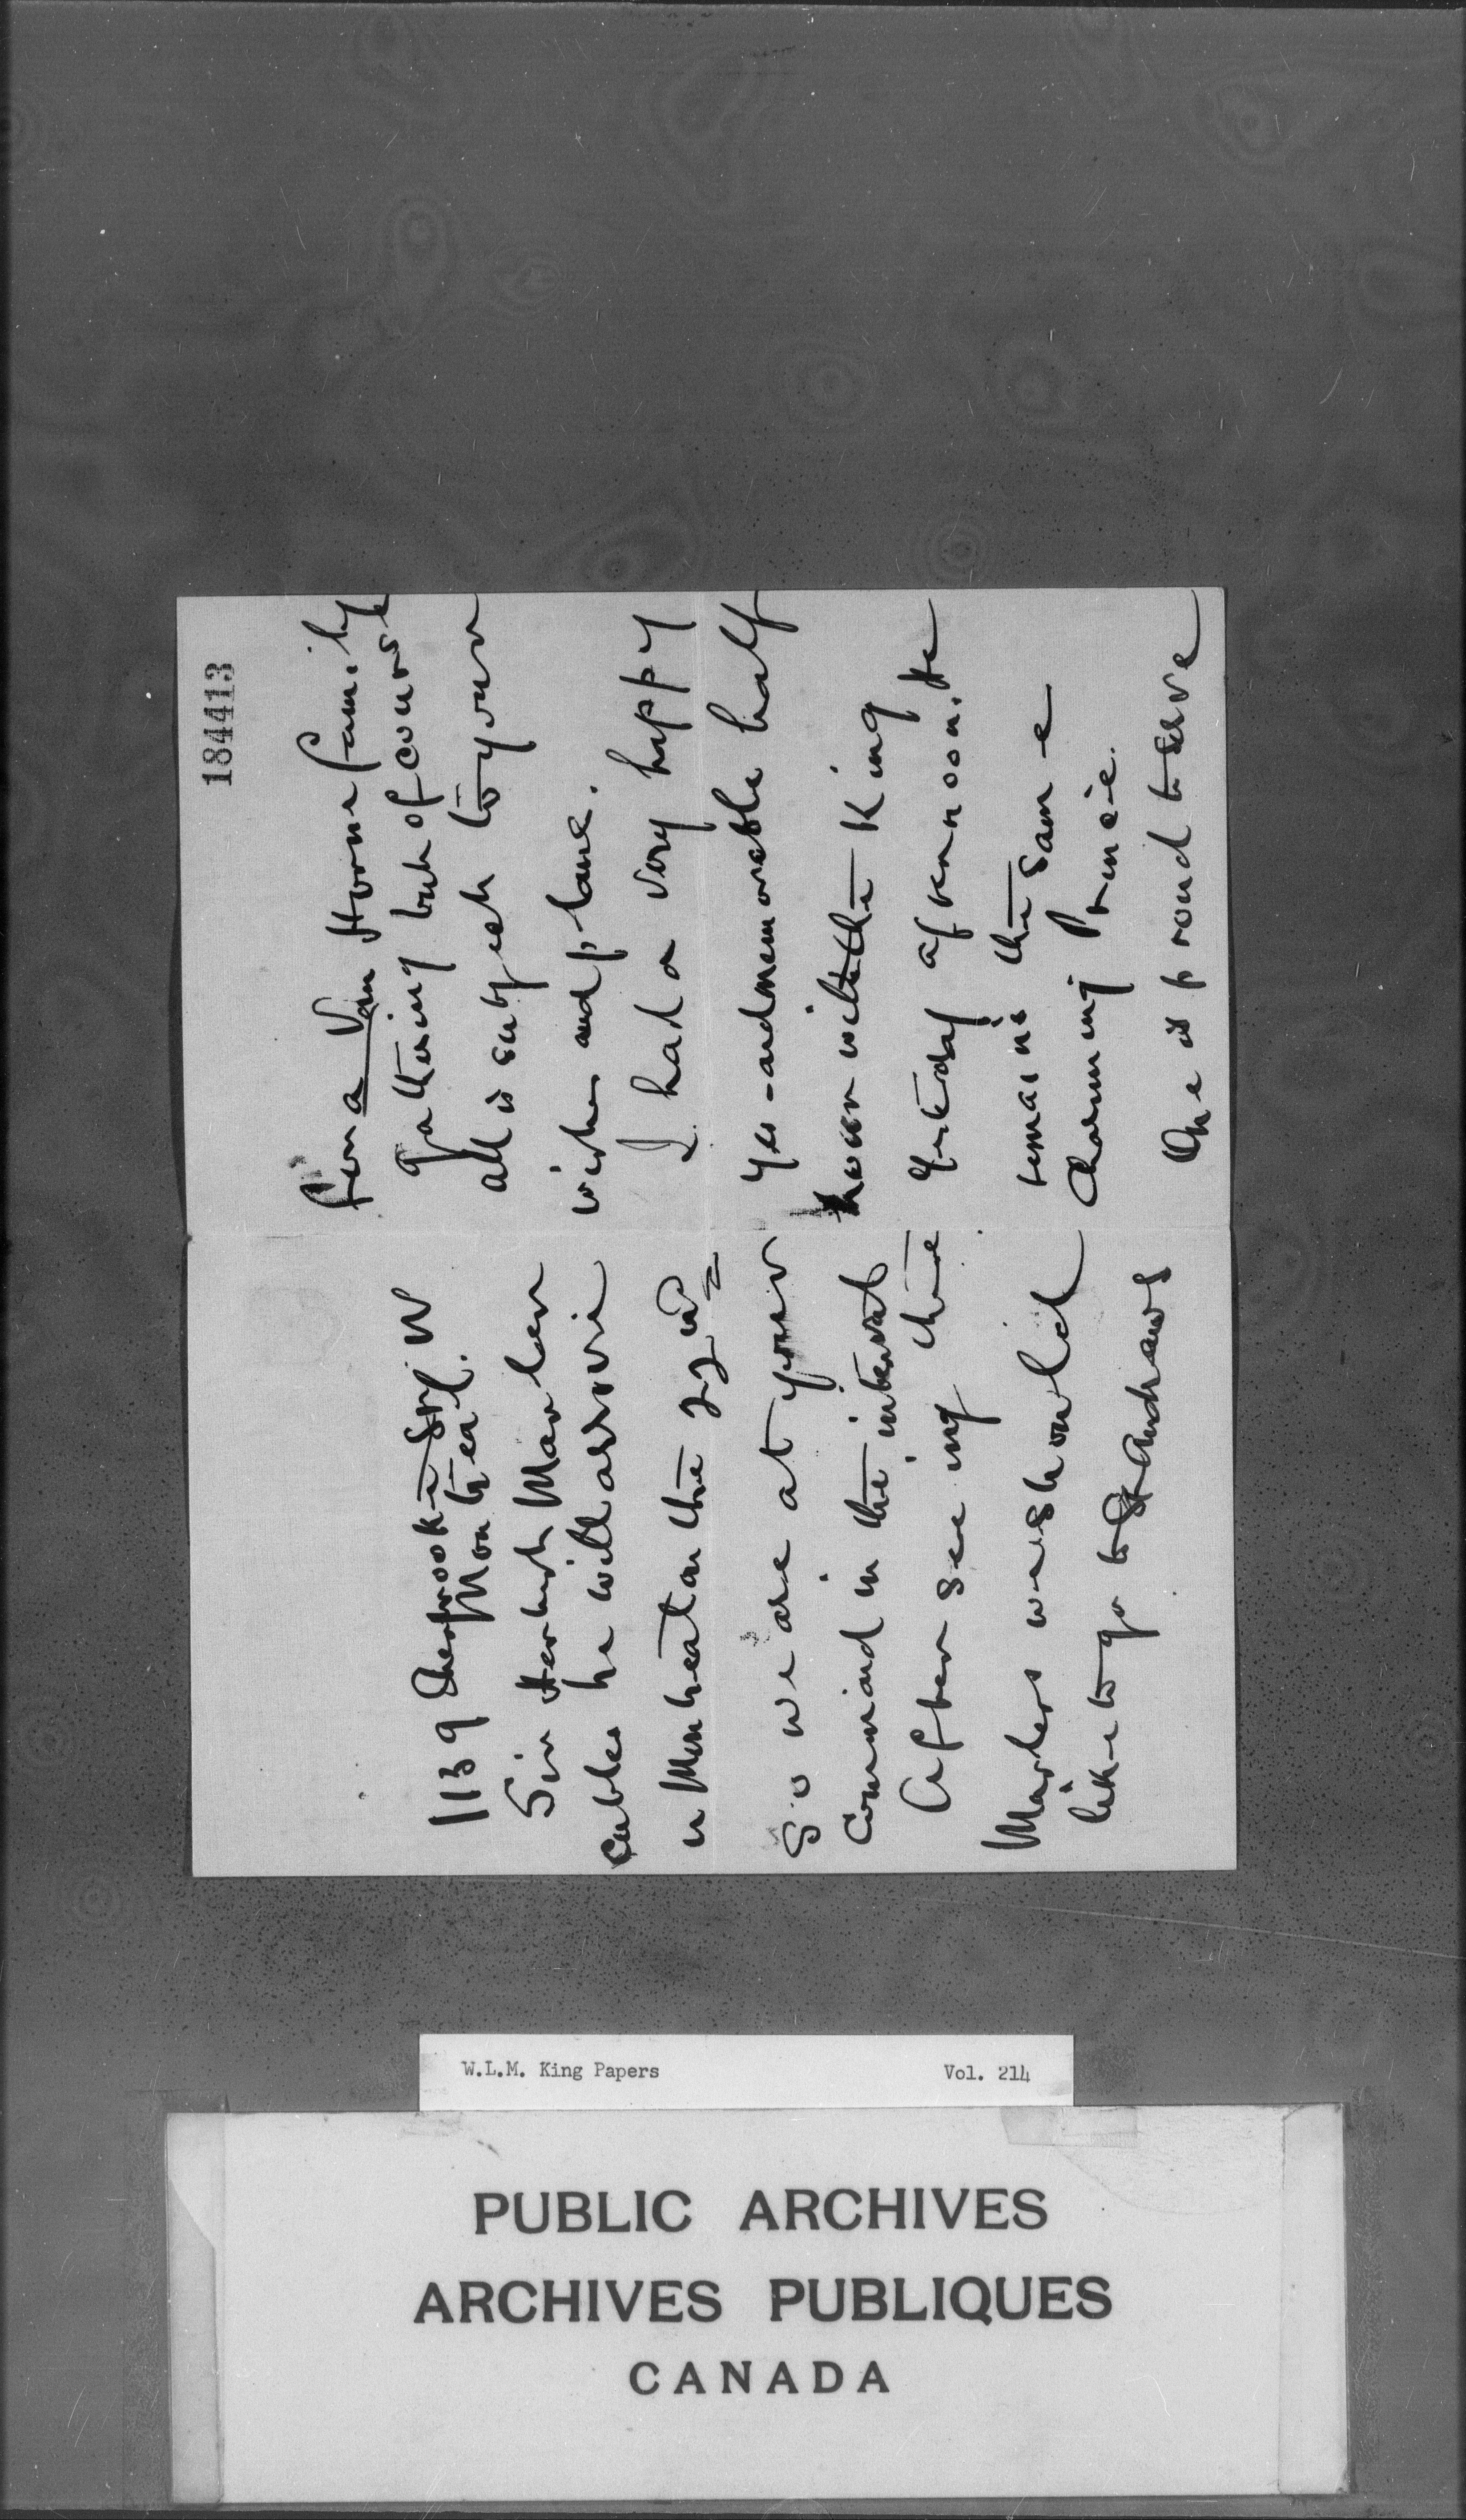 1139 Sherbrooke St. W
Montreal.
Sir Herbert Marler
cables he will arrive
in Montreal on the 22nd
So we are at your
command in the interval
After seeing the
Marlers we should
like to go to St Andrews
184413
for a Van Horne family
gathering but of course
all is subject to your
wishes and plans.
I had a very happy
yes - and memorable half
hour with the King
yesterday afternoon. He
remains the same
charming Prince.
One is proud to serve
W.L.M. King Papers Vol. 214
PUBLIC ARCHIVES
ARCHIVES PUBLIQUES
CANADA